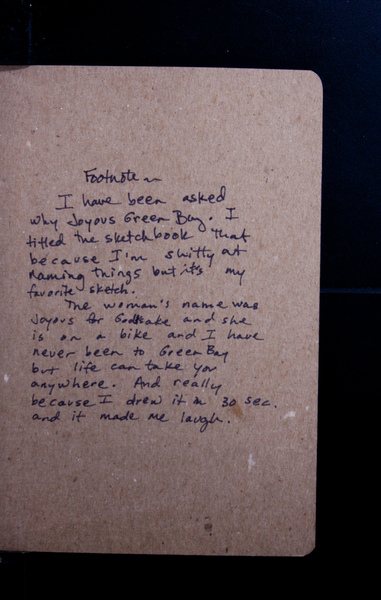 Footnote ~
I have been asked
why Joyous Green Bay. I
titled the sketchbook that
because I'm shitty at
naming things but it's my
favorite sketch.
The woman's name was
Joyous for Godsake and she
is on a bike and I have
never been to Green Bay
but life can take you
anywhere. And really
because I drew it in 30 sec.
and it made me laugh.